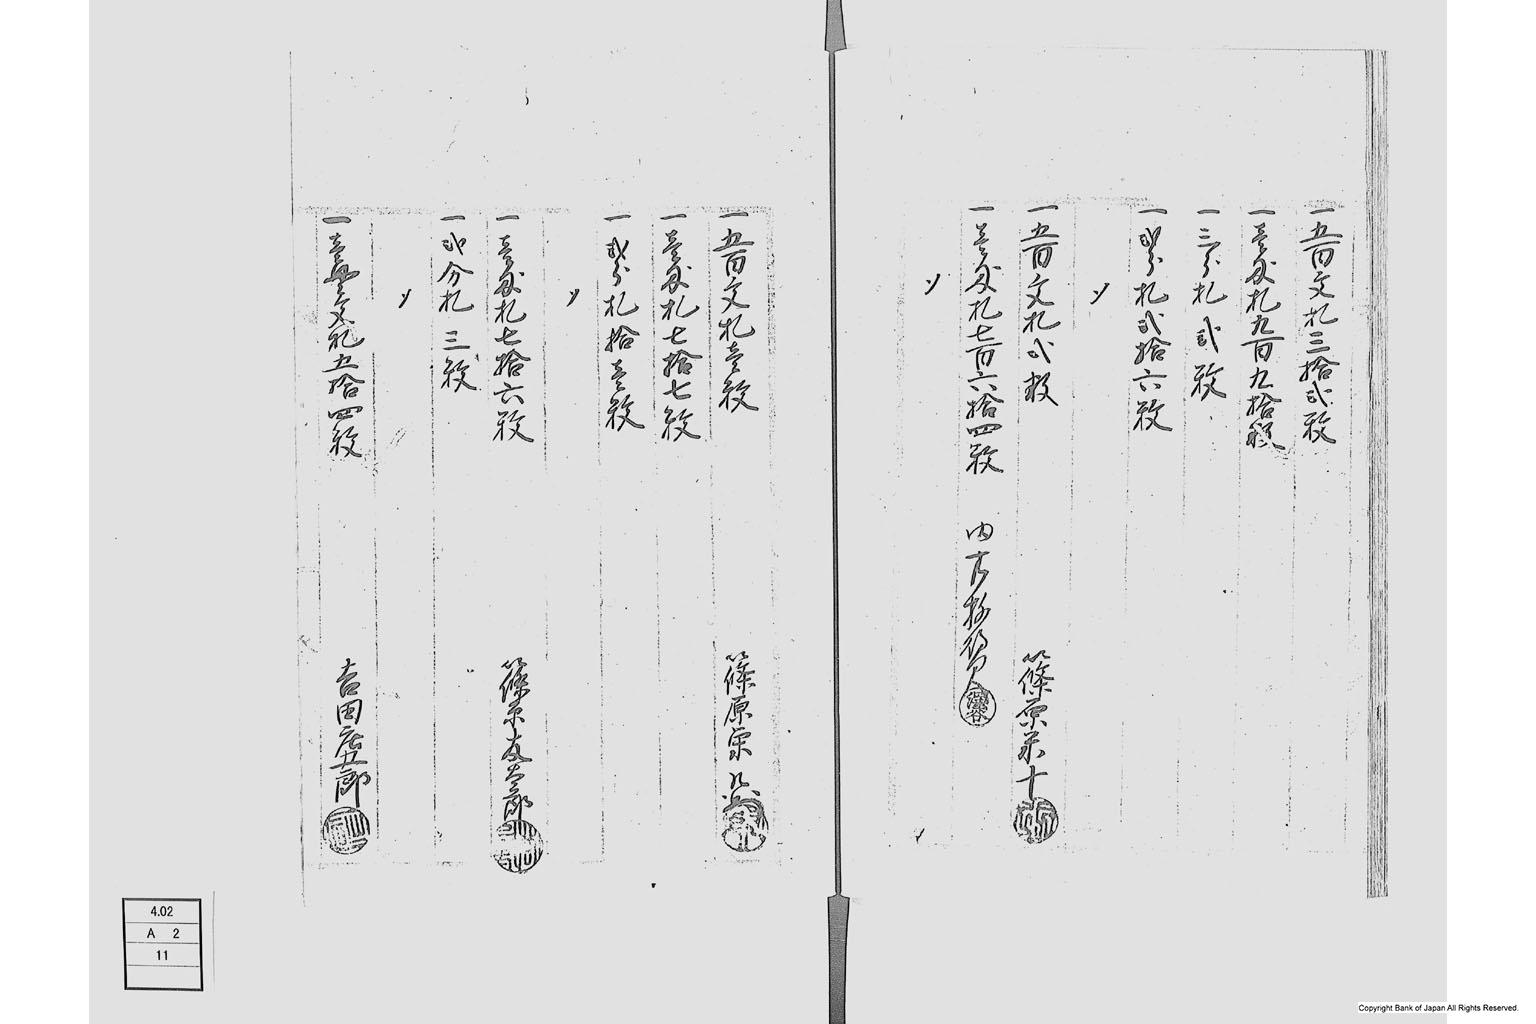 一五百文札三拾弐枚
一壱匁札九百九拾枚
一三分札弐枚
一弐分札弐拾六枚
〆
一五百文札弐枚
篠原
十
一壱匁札七百六拾四枚
内
〆
一五百文札壱枚
篠原宗
一壱匁札七拾七枚
一弐分札拾壱枚
〆
一壱匁札七拾六枚
篠原
郎
一弐分札三枚
〆
一壱貫文札五拾四枚
吉田庄五郎
4.02
A 2
11
Copyright Bank of Japan All Rights Reserved.